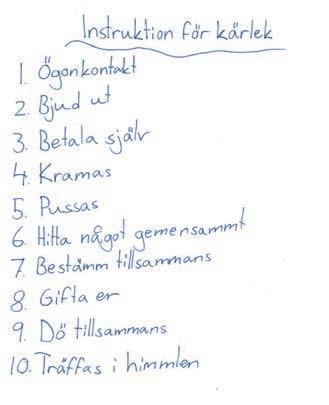 Instruktion för kärlek
1. Ögonkontakt
2. Bjud ut
3. Betala själv
4. Kramas
5. Pussas
6. Hitta något gemensammt
7. Bestämm tillsammans
8. Gifta er
9. Dö tillsammans
10. Träffas i himmlen